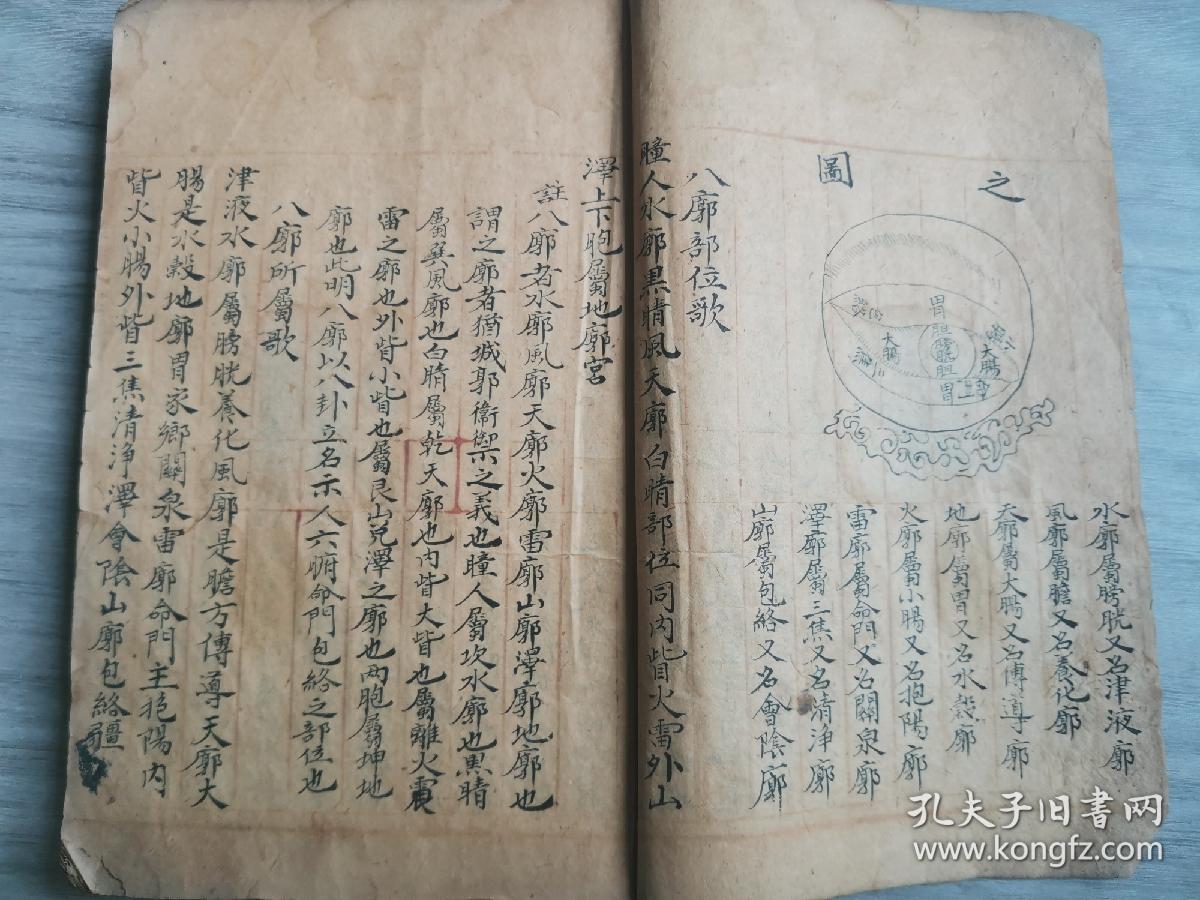 之圖
胃
胆
膀胱
胆
胃
大腸
大腸
水廓屬膀胱又名津液廓
風廓屬膽又名養化廓
天廓屬大腸又名傳導廓
地廓屬胃又名水穀廓
火廓屬小腸又名抱陽廓
雷廓屬命門又名關泉廓
澤廓屬三焦又名清淨廓
山廓屬包絡又名會陰廓
八廓部位歌
瞳人水廓黑睛風天廓白睛部位同內眥火雷外山
澤上下胞屬地廓宮
註八廓者水廓風廓天廓火廓雷廓山廓澤廓地廓也
謂之廓者猶城郭衛禦之義也瞳人屬坎水廓也黑睛
屬巽風廓也白睛屬乾天廓也內眥大眥也屬離火震
雷之廓也外眥小眥也屬艮山兌澤之廓也兩胞屬坤地
廓也此明八廓以八卦立名示人六腑命門包絡之部位也
八廓所屬歌
津液水廓屬膀胱養化風廓是膽方傳導天廓大
腸是水穀地廓胃家鄉關泉雷廓命門主抱陽內
眥火小腸外眥三焦清淨澤會陰山廓包絡疆
孔夫子旧书网
www.kongfz.com